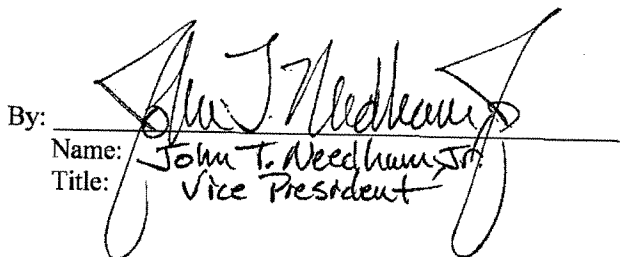 By: John T. Needham Jr
Name: John T. Needham, Jr.
Title: Vice President